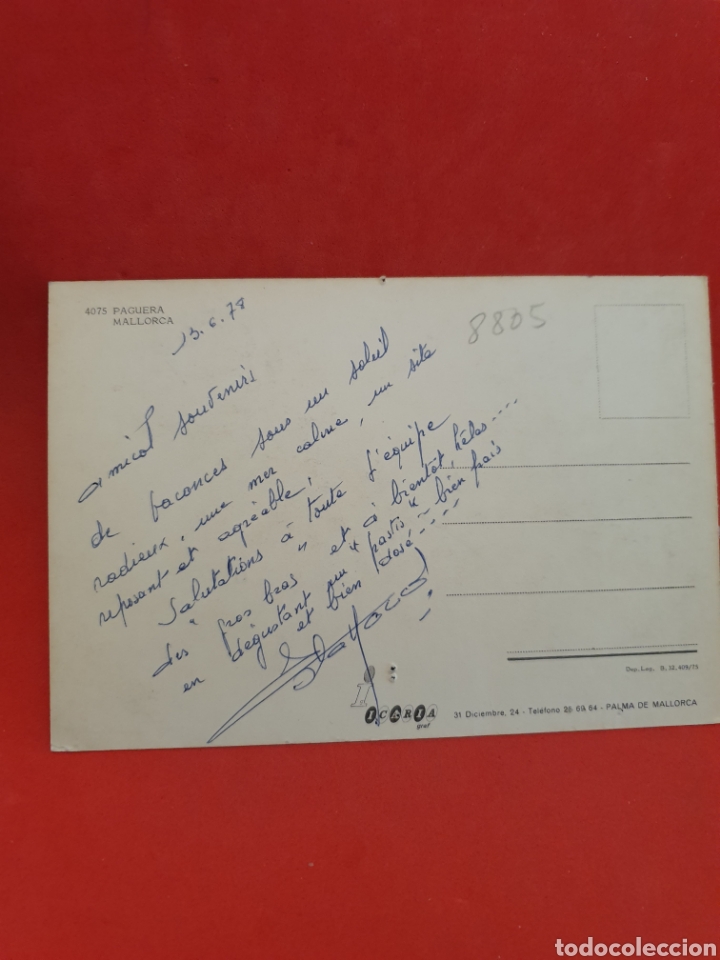 4075 PAGUERA
MALLORCA
13.6.78
8805
amical souvenirs
de vacances sous un soleil
radieux, une mer calme, un site
reposant et agréable,
Salutations à toute l'équipe
des "gros bras" et à bientôt, hélas....
en dégustant un "pastis" bien frais
et bien dosé-----
Dep. Leg. B. 32.409/75
ICARIA
graf
31 Diciembre, 24 - Teléfono 25 69 64 - PALMA DE MALLORCA
todocoleccion